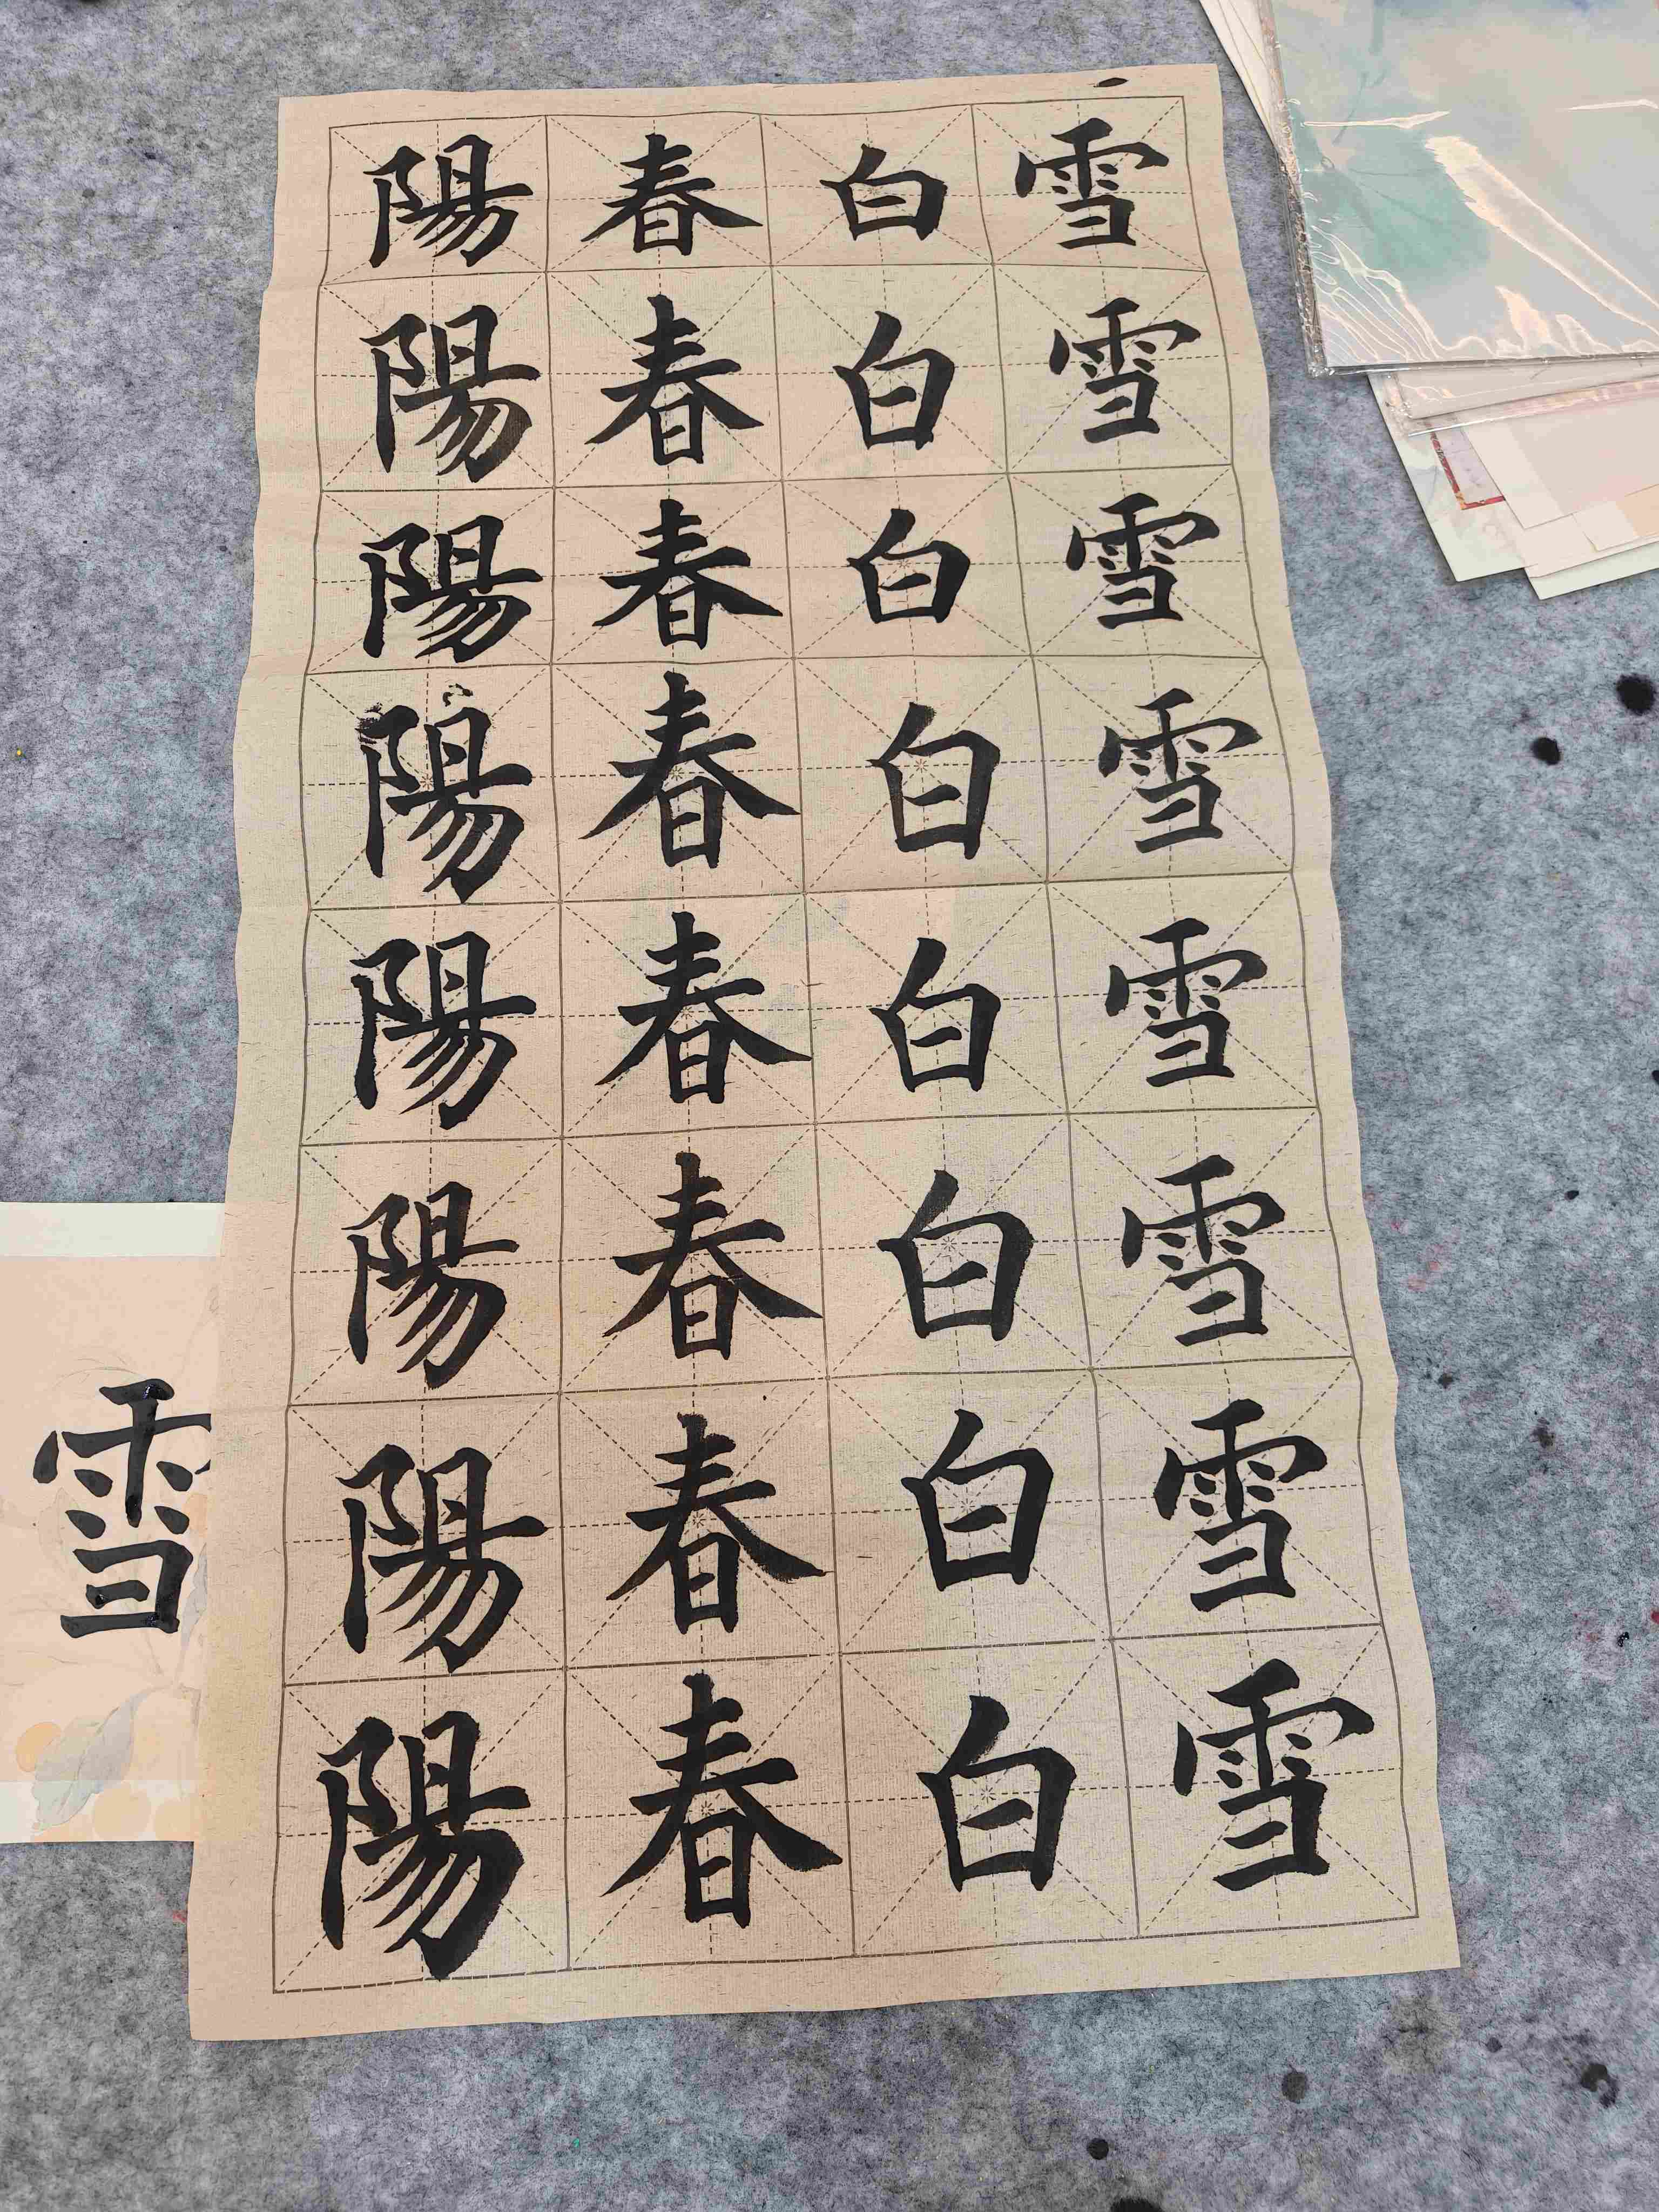 陽春白雪
陽春白雪
陽春白雪
陽春白雪
陽春白雪
陽春白雪
陽春白雪
陽春白雪
雪